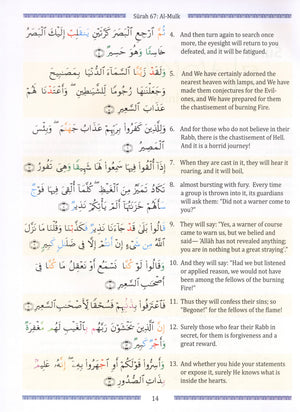 Sūrah 67: Al-Mulk
ثُمَّ ٱرْجِعِ ٱلْبَصَرَ كَرَّتَيْنِ يَنقَلِبْ إِلَيْكَ ٱلْبَصَرُ
خَاسِئًا وَهُوَ حَسِيرٌ
4. And then turn again to search once
more, the eyesight will return to you
defeated, and it will be fatigued.
وَلَقَدْ زَيَّنَّا ٱلسَّمَآءَ ٱلدُّنْيَا بِمَصَٰبِيحَ
وَجَعَلْنَٰهَا رُجُومًا لِّلشَّيَٰطِينِ ۖ وَأَعْتَدْنَا لَهُمْ
عَذَابَ ٱلسَّعِيرِ
5. And We have certainly adorned the
nearest heaven with lamps, and We have
made them conjectures for the Evil-
ones, and We have prepared for them
the chastisement of burning Fire.
وَلِلَّذِينَ كَفَرُوا۟ بِرَبِّهِمْ عَذَابُ جَهَنَّمَ ۖ وَبِئْسَ
ٱلْمَصِيرُ
6. And for those who do not believe in their
Rabb, there is the chastisement of Hell.
And it is a horrid journey!
إِذَآ أُلْقُوا۟ فِيهَا سَمِعُوا۟ لَهَا شَهِيقًا وَهِىَ تَفُورُ
7. When they are cast in it, they will hear it
roaring, and it will boil,
تَكَادُ تَمَيَّزُ مِنَ ٱلْغَيْظِ ۖ كُلَّمَآ أُلْقِىَ فِيهَا فَوْجٌ
سَأَلَهُمْ خَزَنَتُهَآ أَلَمْ يَأْتِكُمْ نَذِيرٌ
8. almost bursting with fury. Every time
a group is thrown into it, its guardians
will ask them: "Did not a warner come to
you?"
قَالُوا۟ بَلَىٰ قَدْ جَآءَنَا نَذِيرٌ فَكَذَّبْنَا وَقُلْنَا مَا نَزَّلَ
ٱللَّهُ مِن شَىْءٍ إِنْ أَنتُمْ إِلَّا فِى ضَلَٰلٍ كَبِيرٍ
9. They will say: "Yes, a warner of course
came to warn us, but we belied and
said— 'Allāh has not revealed anything;
you are in nothing but a great straying'."
وَقَالُوا۟ لَوْ كُنَّا نَسْمَعُ أَوْ نَعْقِلُ مَا كُنَّا
فِىٓ أَصْحَٰبِ ٱلسَّعِيرِ
10. And they will say: "Had we but listened
or applied reason, we would not have
been among the fellows of the burning
Fire!"
فَٱعْتَرَفُوا۟ بِذَنۢبِهِمْ فَسُحْقًا لِّأَصْحَٰبِ ٱلسَّعِيرِ
11. Thus they will confess their sins; so
"Begone!" for the fellows of the flame!
إِنَّ ٱلَّذِينَ يَخْشَوْنَ رَبَّهُم بِٱلْغَيْبِ لَهُم مَّغْفِرَةٌ
وَأَجْرٌ كَبِيرٌ
12. Surely those who fear their Rabb in
secret, for them is forgiveness and a
great reward.
وَأَسِرُّوا۟ قَوْلَكُمْ أَوِ ٱجْهَرُوا۟ بِهِۦٓ ۖ إِنَّهُۥ عَلِيمٌۢ
بِذَاتِ ٱلصُّدُورِ
13. And whether you hide your statements
or expose it, surely He knows what is
inside the hearts.
14